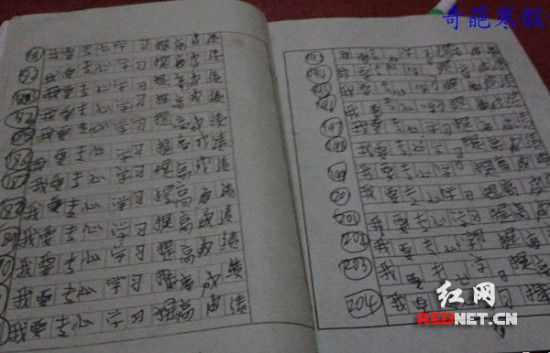 奇葩寒假
我要专心学习提高成绩
我要专心学习提高成绩
我要专心学习提高成绩
我要专心学习提高成绩
我要专心学习提高成绩
186 我要专心学习提高成绩
187 我要专心学习提高成绩
188 我要专心学习提高成绩
我要专心学习提高成绩
我要专心学习提高成绩
我要专心学习提高成绩
我要专心学习提高成绩
193 我要专心学习提高成绩
194 我要专心学习提高成绩
195 我要专心学习提高成绩
我要专心学习提高成绩
197 我要专心学习提高成绩
198 我要专心学习提高成绩
199 我要专心学习提高成
20 我要专心学习提高成
201 我要专心学习提高成
202 我要专心学习提高
203 我要专心学习提高
204 我要专心学习提
红网
REDNET.CN